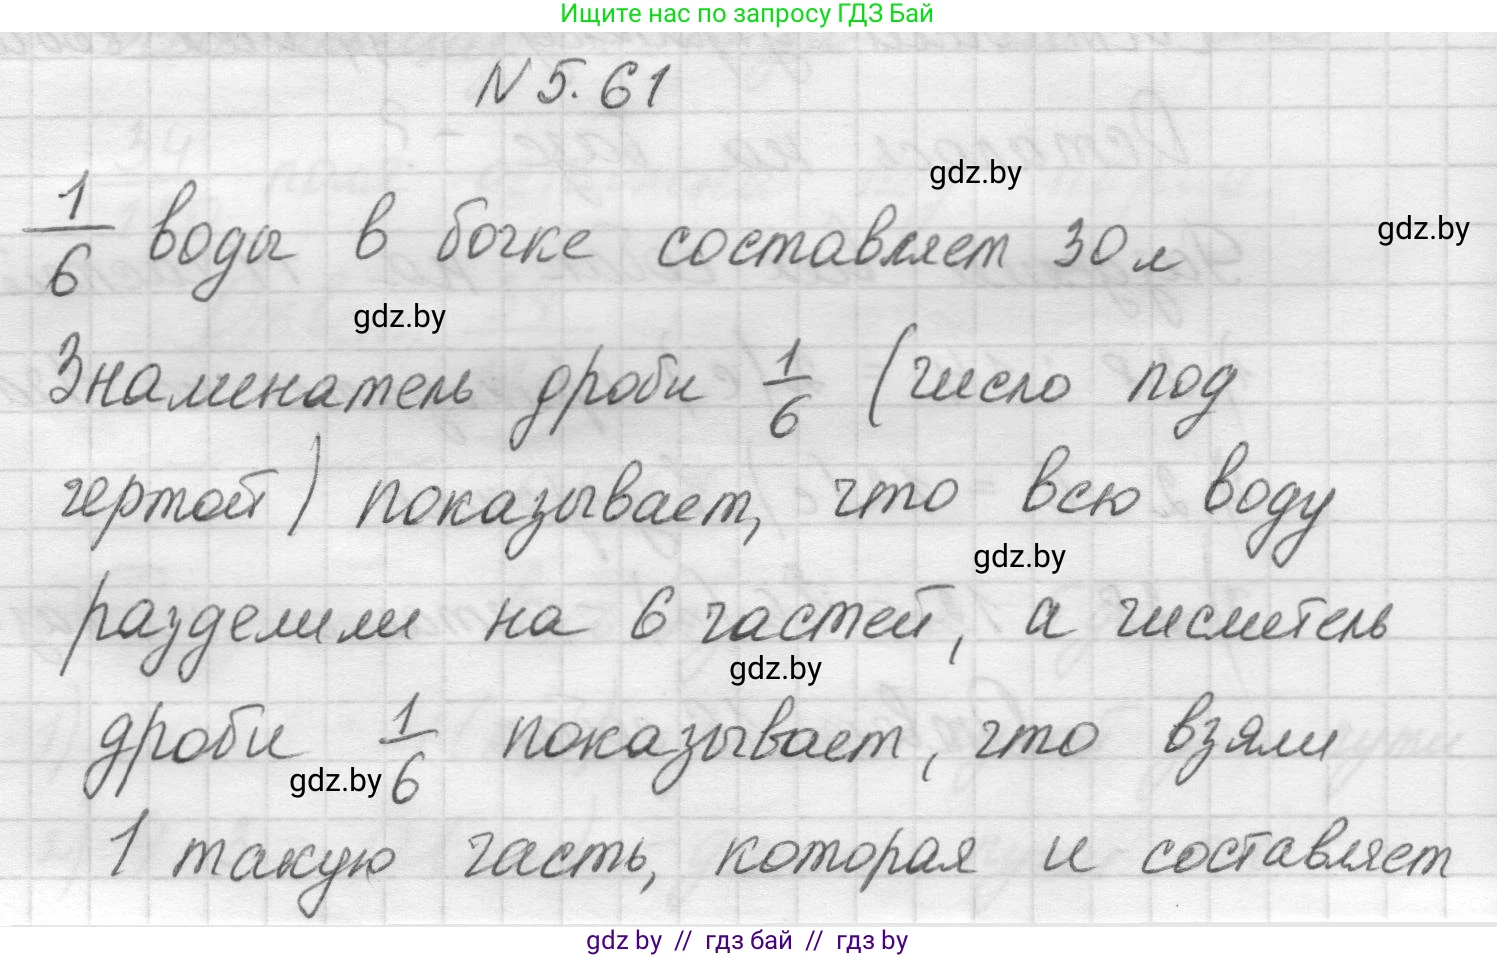 Ищите нас по запросу ГДЗ Бай
N 5.61
gdz.by
1/6 воды в бочке составляет 30 л
gdz.by
gdz.by
Знаменатель дроби 1/6 (число под
чертой) показывает, что всю воду
gdz.by
разделили на 6 частей, а числитель
gdz.by
дроби 1/6 показывает, что взяли
gdz.by
1 такую часть, которая и составляет
gdz by // гдз бай // гдз by